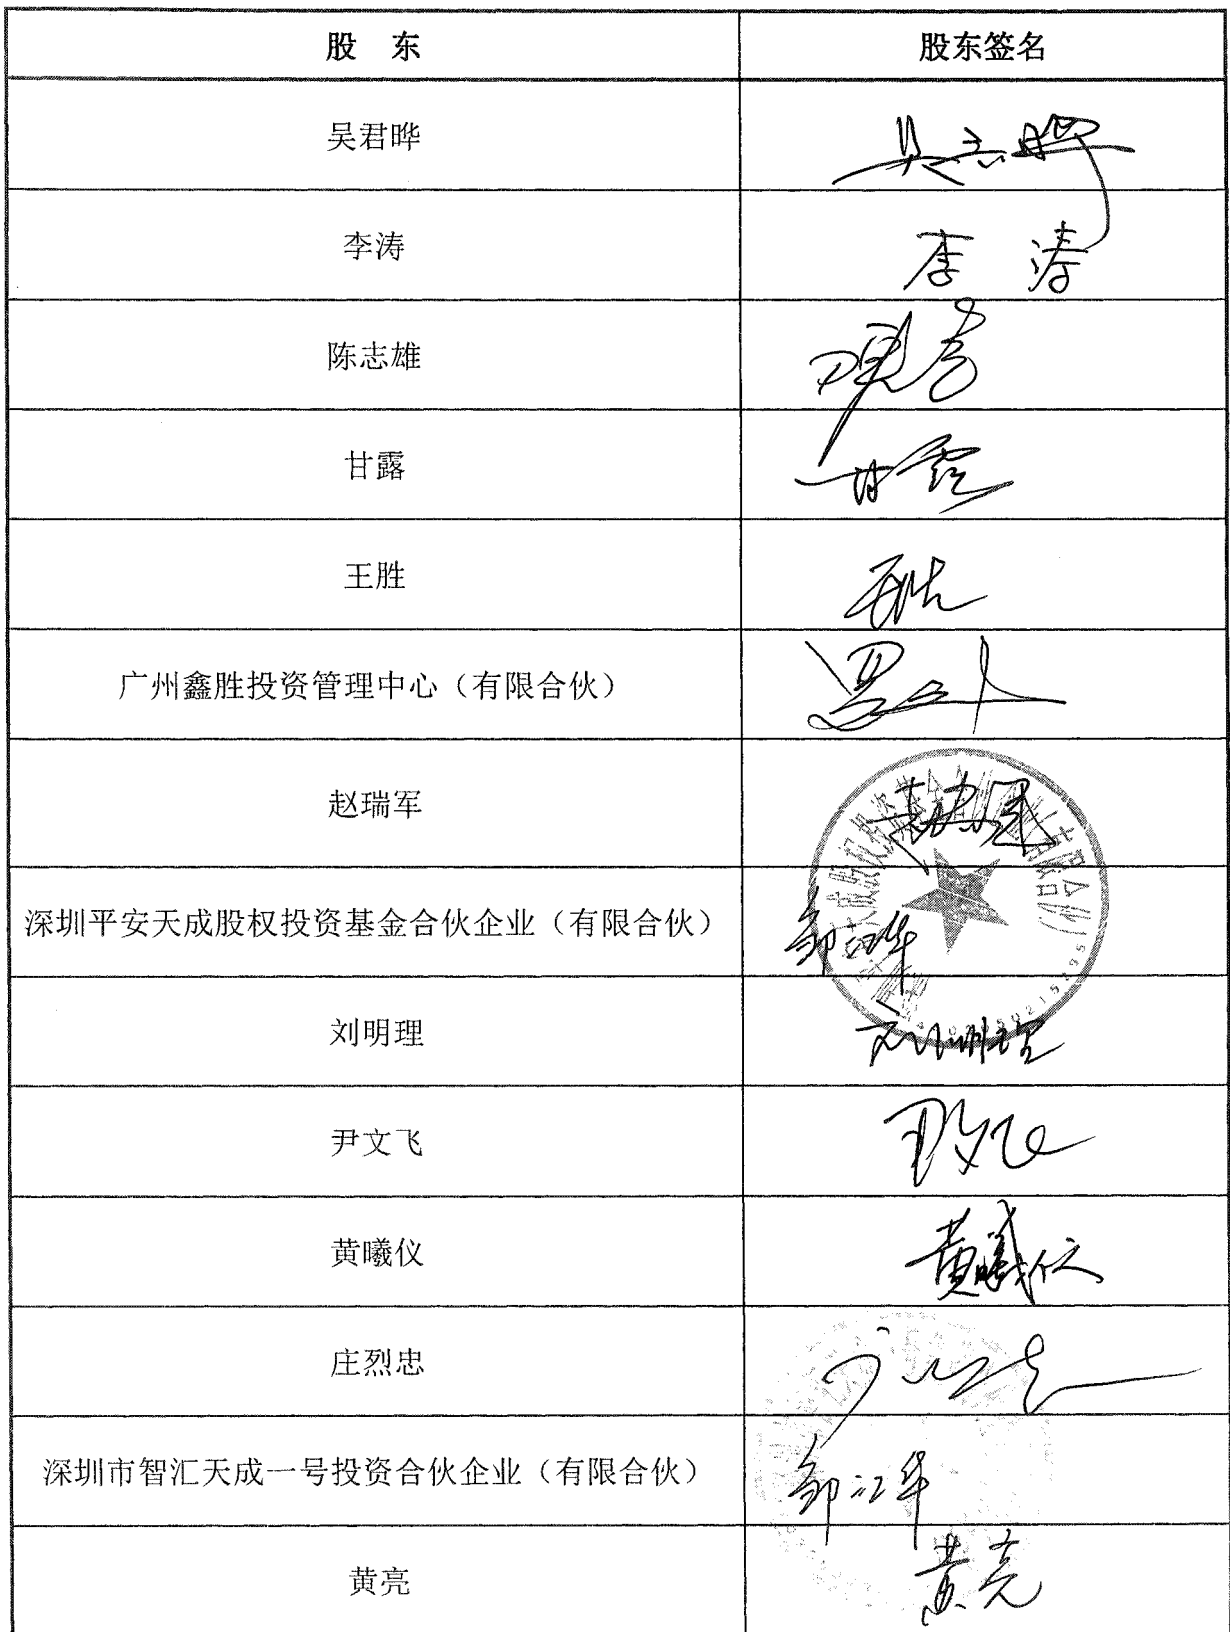 股 东 股东签名
吴君晔 吴君晔
李涛 李涛
陈志雄
甘露 甘露
王胜 王胜
广州鑫胜投资管理中心（有限合伙）
赵瑞军
深圳平安天成股权投资基金合伙企业（有限合伙） 邹江华
刘明理 刘明理
尹文飞 尹文飞
黄曦仪 黄曦仪
庄烈忠
深圳市智汇天成一号投资合伙企业（有限合伙） 邹江华
黄亮 黄亮